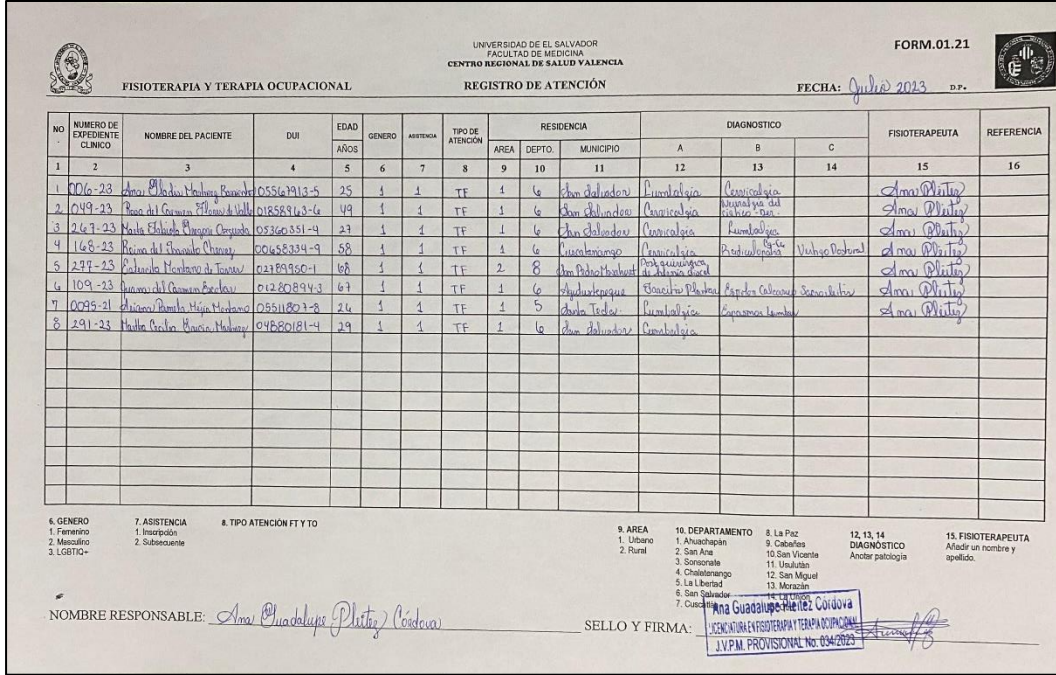 UNIVERSIDAD DE EL SALVADOR
FACULTAD DE MEDICINA
CENTRO REGIONAL DE SALUD VALENCIA
FORM.01.21
FISIOTERAPIA Y TERAPIA OCUPACIONAL REGISTRO DE ATENCIÓN FECHA: Julio 2023 D.P.
NO. NUMERO DE EXPEDIENTE CLINICO NOMBRE DEL PACIENTE DUI EDAD AÑOS GENERO ASISTENCIA TIPO DE ATENCIÓN RESIDENCIA AREA DEPTO. MUNICIPIO DIAGNOSTICO A B C FISIOTERAPEUTA REFERENCIA
1 2 3 4 5 6 7 8 9 10 11 12 13 14 15 16
1 006-23 Ana Gladis Martinez 05567913-5 25 1 1 TF 1 6 San Salvador Lumbalgia Cervicalgia Ana Pleitez
2 049-23 Rosa del Carmen Flores de Valle 01858963-6 49 1 1 TF 1 6 San Salvador Cervicalgia Neuralgia del ciatico - Der. Ana Pleitez
3 267-23 Marta 05360351-4 27 1 1 TF 1 6 San Salvador Cervicalgia Lumbalgia Ana Pleitez
4 168-23 Reina del Chavez 00658334-9 58 1 1 TF 1 6 Cuscatancingo Cervicalgia Vertigo Postural Ana Pleitez
5 277-23 Montano de Torres 02789980-1 68 1 1 TF 2 8 San Pedro Post quirurgica de hernia discal Ana Pleitez
6 109-23 Juana del Carmen Escobar 01280894-3 67 1 1 TF 1 6 Ayutuxtepeque Fascitis Plantar Espolon Calcaneo Sacroileitis Ana Pleitez
7 0095-21 Ariana Pamela Mejia Montano 05511807-8 26 1 1 TF 1 5 Santa Tecla. Lumbalgia Espasmos Lumbar Ana Pleitez
8 291-23 Martha Cecilia Garcia Martinez 04880181-4 29 1 1 TF 1 6 San Salvador Lumbalgia
6. GENERO
1. Femenino
2. Masculino
3. LGBTIQ+
7. ASISTENCIA
1. Inscripción
2. Subsecuente
8. TIPO ATENCIÓN FT Y TO
9. AREA
1. Urbano
2. Rural
10. DEPARTAMENTO
1. Ahuachapán
2. San Ana
3. Sonsonate
4. Chalatenango
5. La Libertad
6. San Salvador
7. Cuscatlán
8. La Paz
9. Cabañas
10.San Vicente
11. Usulután
12. San Miguel
13. Morazán
14. La Unión
12, 13, 14
DIAGNÓSTICO
Anotar patología
15. FISIOTERAPEUTA
Añadir un nombre y
apellido.
NOMBRE RESPONSABLE: Ana Guadalupe Pleitez Córdova
SELLO Y FIRMA:
Ana Guadalupe Pleitez Córdova
LICENCIATURA EN FISIOTERAPIA Y TERAPIA OCUPACIONAL
J.V.P.M. PROVISIONAL No. 034/2023